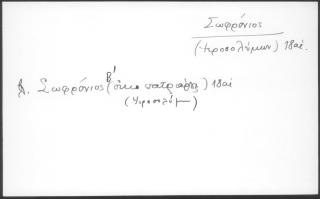 Σωφρόνιος
(Ιεροσολύμων) 18αι.
Σωφρόνιος Β' (οικ. πατριάρχης) 18αι
(Ιεροσολύμ—)